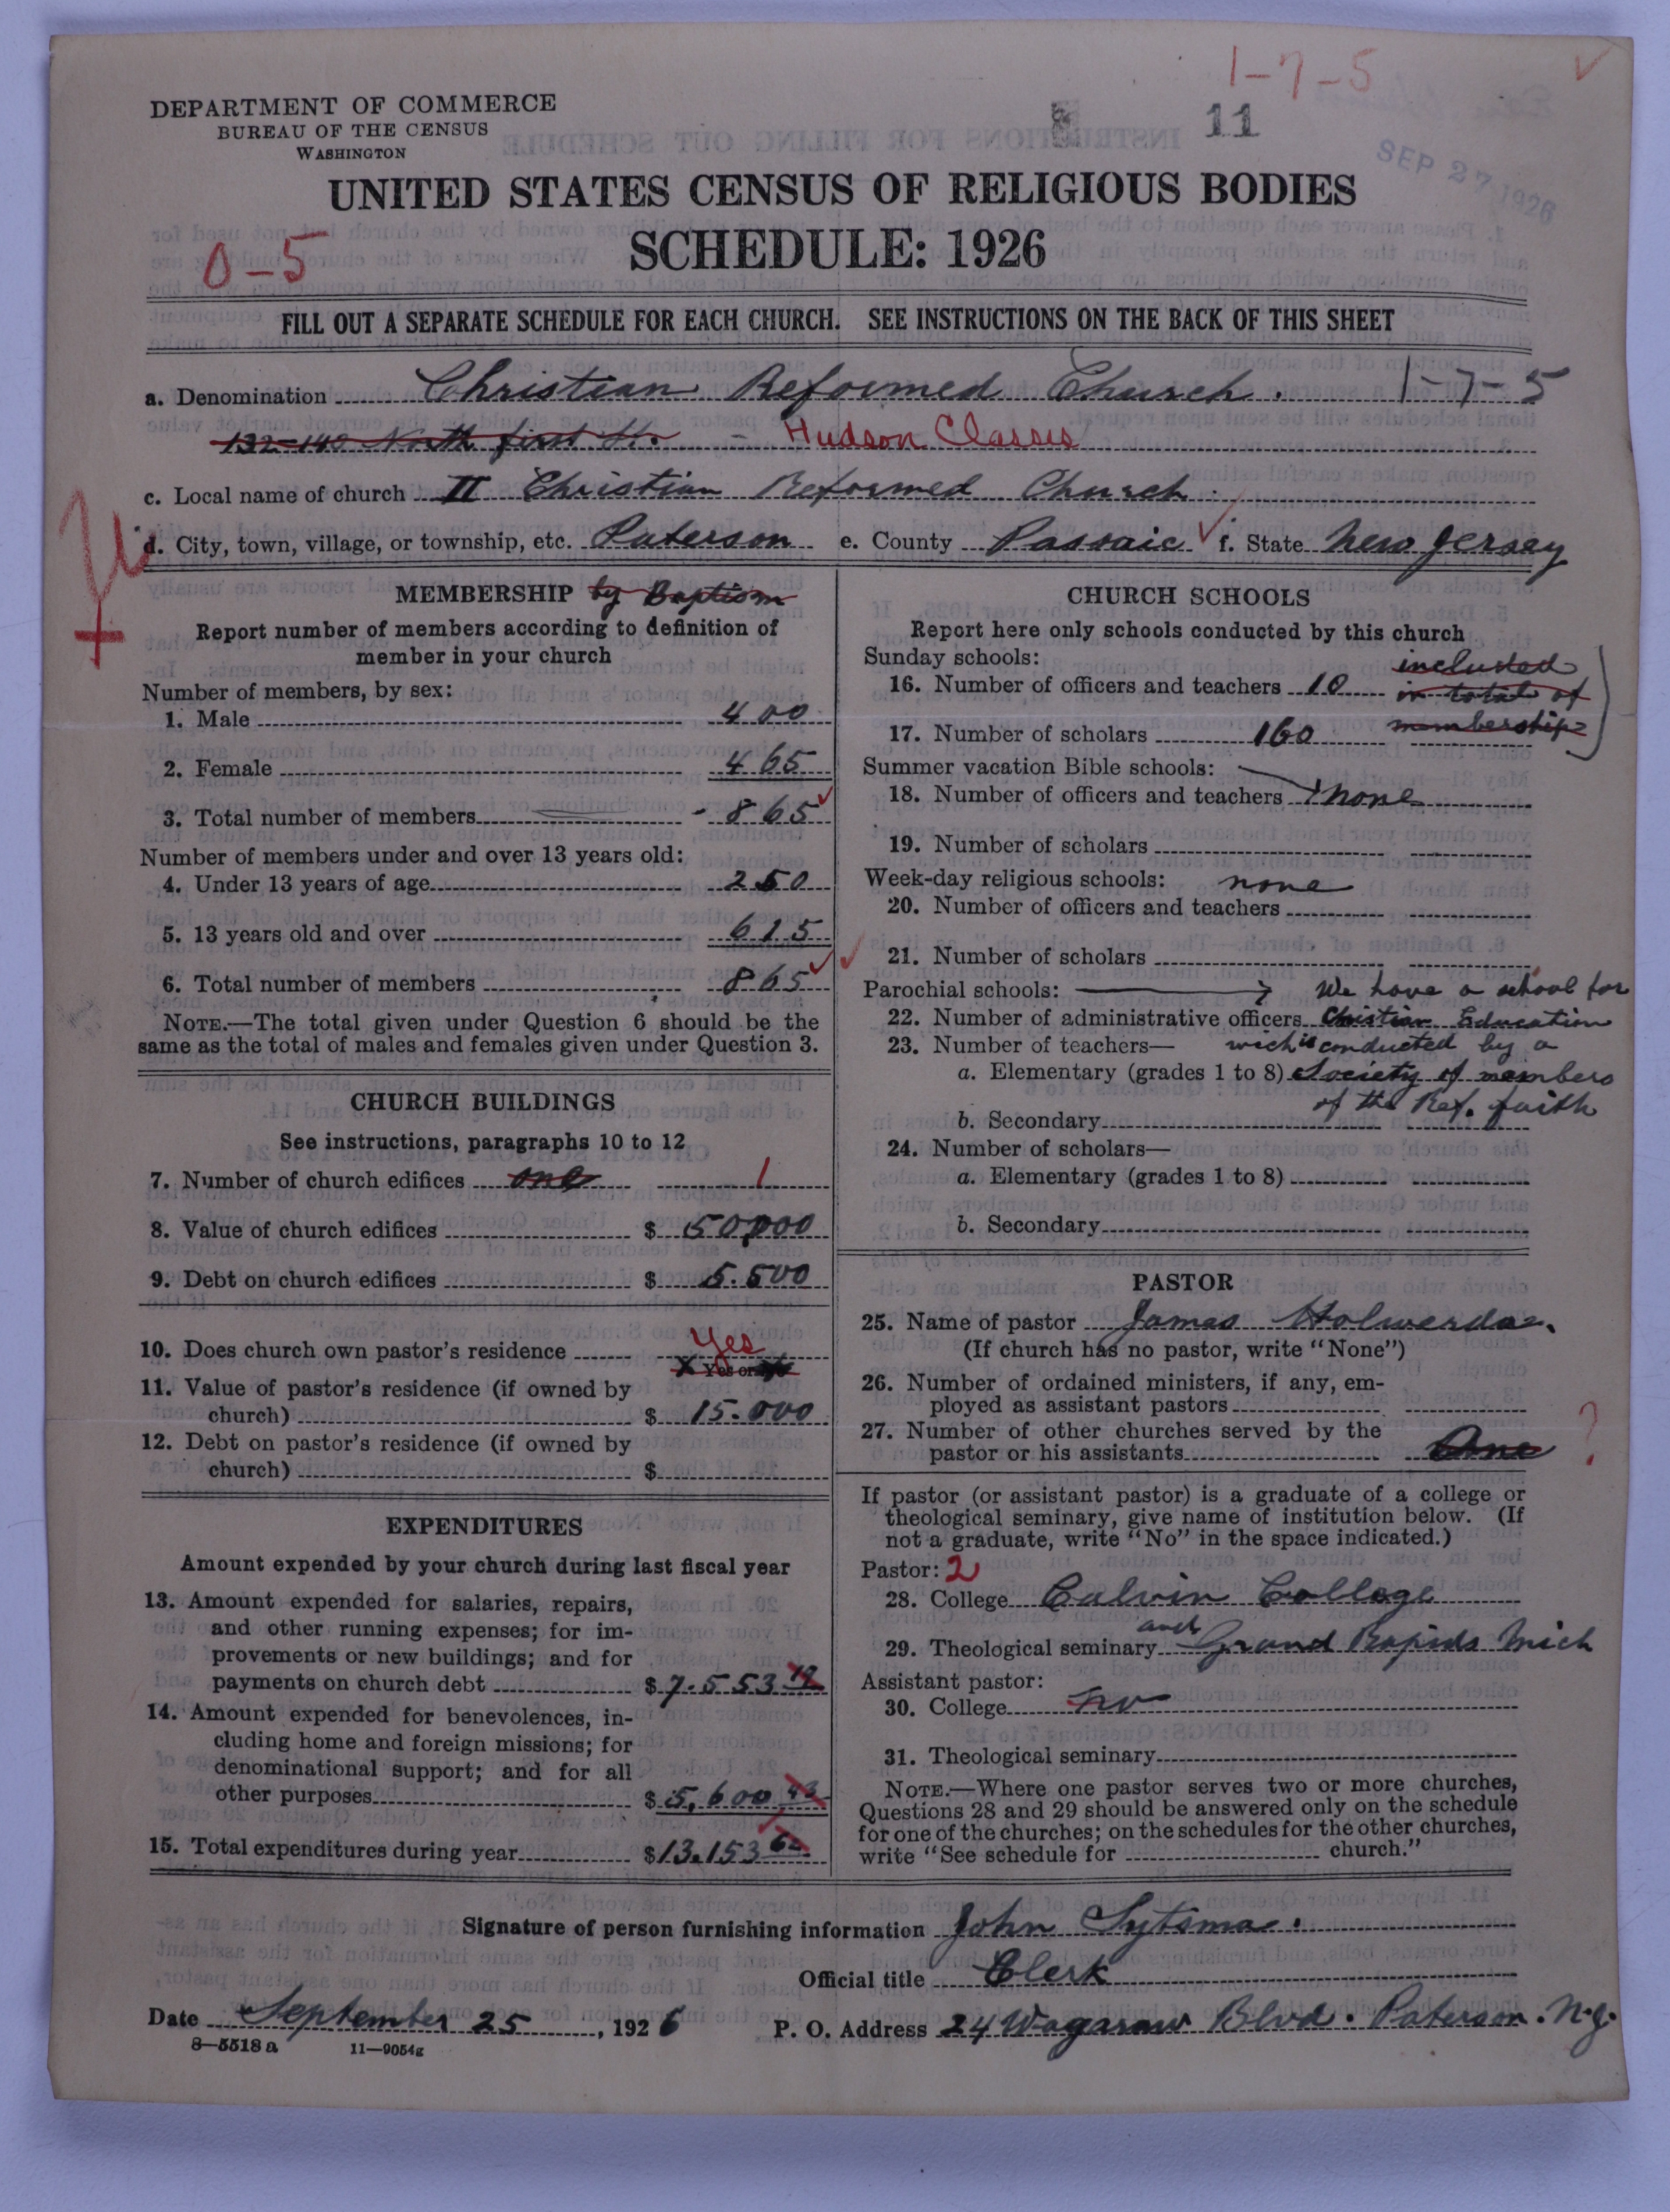 1-7-5
DEPARTMENT OF COMMERCE
BUREAU OF THE CENSUS
WASHINGTON
11
SEP 27 1926
UNITED STATES CENSUS OF RELIGIOUS BODIES
SCHEDULE: 1926
0-5
FILL OUT A SEPARATE SCHEDULE FOR EACH CHURCH. SEE INSTRUCTIONS ON THE BACK OF THIS SHEET
a. Denomination Christian Reformed Church. 1-7-5
132-140 North first St. - Hudson Classis
c. Local name of church II Christian Reformed Church.
d. City, town, village, or township, etc. Paterson e. County Passaic f. State New Jersey
MEMBERSHIP by Baptism
Report number of members according to definition of
member in your church
Number of members, by sex:
1. Male 400
2. Female 465
3. Total number of members 865
Number of members under and over 13 years old:
4. Under 13 years of age 250
5. 13 years old and over 615
6. Total number of members 865
NOTE.—The total given under Question 6 should be the
same as the total of males and females given under Question 3.
CHURCH BUILDINGS
See instructions, paragraphs 10 to 12
7. Number of church edifices one 1
8. Value of church edifices $ 50,000
9. Debt on church edifices $ 5.500
10. Does church own pastor's residence Yes
X Yes or No
11. Value of pastor's residence (if owned by
church) $ 15.000
12. Debt on pastor's residence (if owned by
church) $
EXPENDITURES
Amount expended by your church during last fiscal year
13. Amount expended for salaries, repairs,
and other running expenses; for im-
provements or new buildings; and for
payments on church debt $ 7.553 19
14. Amount expended for benevolences, in-
cluding home and foreign missions; for
denominational support; and for all
other purposes $ 5,600 43
15. Total expenditures during year $ 13.153 62
CHURCH SCHOOLS
Report here only schools conducted by this church
Sunday schools: included
16. Number of officers and teachers 10 in total of
17. Number of scholars 160 membership
Summer vacation Bible schools:
18. Number of officers and teachers none
19. Number of scholars
Week-day religious schools: none
20. Number of officers and teachers
21. Number of scholars
Parochial schools: We have a school for
22. Number of administrative officers Christian Education
23. Number of teachers— wich is conducted by a
a. Elementary (grades 1 to 8) Society of members
of the Ref. faith
b. Secondary
24. Number of scholars—
a. Elementary (grades 1 to 8)
b. Secondary
PASTOR
25. Name of pastor James Holwerda.
(If church has no pastor, write "None")
26. Number of ordained ministers, if any, em-
ployed as assistant pastors
27. Number of other churches served by the
pastor or his assistants One ?
If pastor (or assistant pastor) is a graduate of a college or
theological seminary, give name of institution below. (If
not a graduate, write "No" in the space indicated.)
Pastor: 2
28. College Calvin College
and
29. Theological seminary Grand Rapids Mich
Assistant pastor:
30. College no
31. Theological seminary
NOTE.—Where one pastor serves two or more churches,
Questions 28 and 29 should be answered only on the schedule
for one of the churches; on the schedules for the other churches,
write "See schedule for church."
Signature of person furnishing information John Sytsma.
Official title Clerk
Date September 25, 1926 P. O. Address 24 Wagaraw Blvd. Paterson. N.J.
8—5518 a 11—9054g